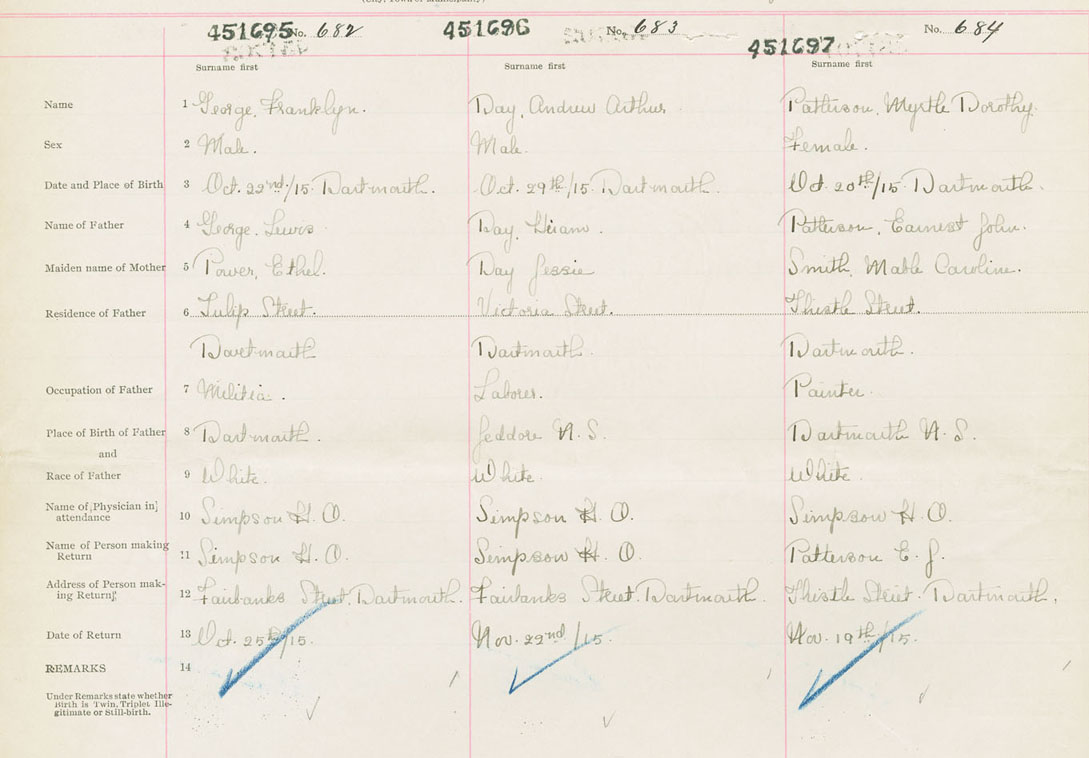 (City, Town or Municipality)
451695 No. 682 451696 No. 683 451697 No. 684
Surname first Surname first Surname first
Name 1 George, Franklyn. Day, Andrew Arthur. Patterson, Myrtle Dorothy.
Sex 2 Male. Male. Female.
Date and Place of Birth 3 Oct. 22nd/15. Dartmouth. Oct. 29th/15 Dartmouth. Oct. 20th/15 Dartmouth.
Name of Father 4 George. Lewis Day, Hiram. Patterson, Earnest John.
Maiden name of Mother 5 Power, Ethel. Day Jessie Smith, Mable Caroline.
Residence of Father 6 Tulip Street. Victoria Street. Thistle Street.
Dartmouth Dartmouth. Dartmouth.
Occupation of Father 7 Militia. Laborer. Painter.
Place of Birth of Father 8 Dartmouth. Jeddore N.S. Dartmouth N.S.
and
Race of Father 9 White. White. White.
Name of Physician in
attendance 10 Simpson H. O. Simpson H. O. Simpson H. O.
Name of Person making
Return 11 Simpson H. O. Simpson H. O. Patterson E. J.
Address of Person mak-
ing Return 12 Fairbanks Street, Dartmouth. Fairbanks Street. Dartmouth. Thistle Street. Dartmouth.
Date of Return 13 Oct. 25th/15. Nov. 22nd/15 Nov. 19th/15.
REMARKS 14
Under Remarks state whether
Birth is Twin, Triplet Ille-
gitimate or Still-birth.